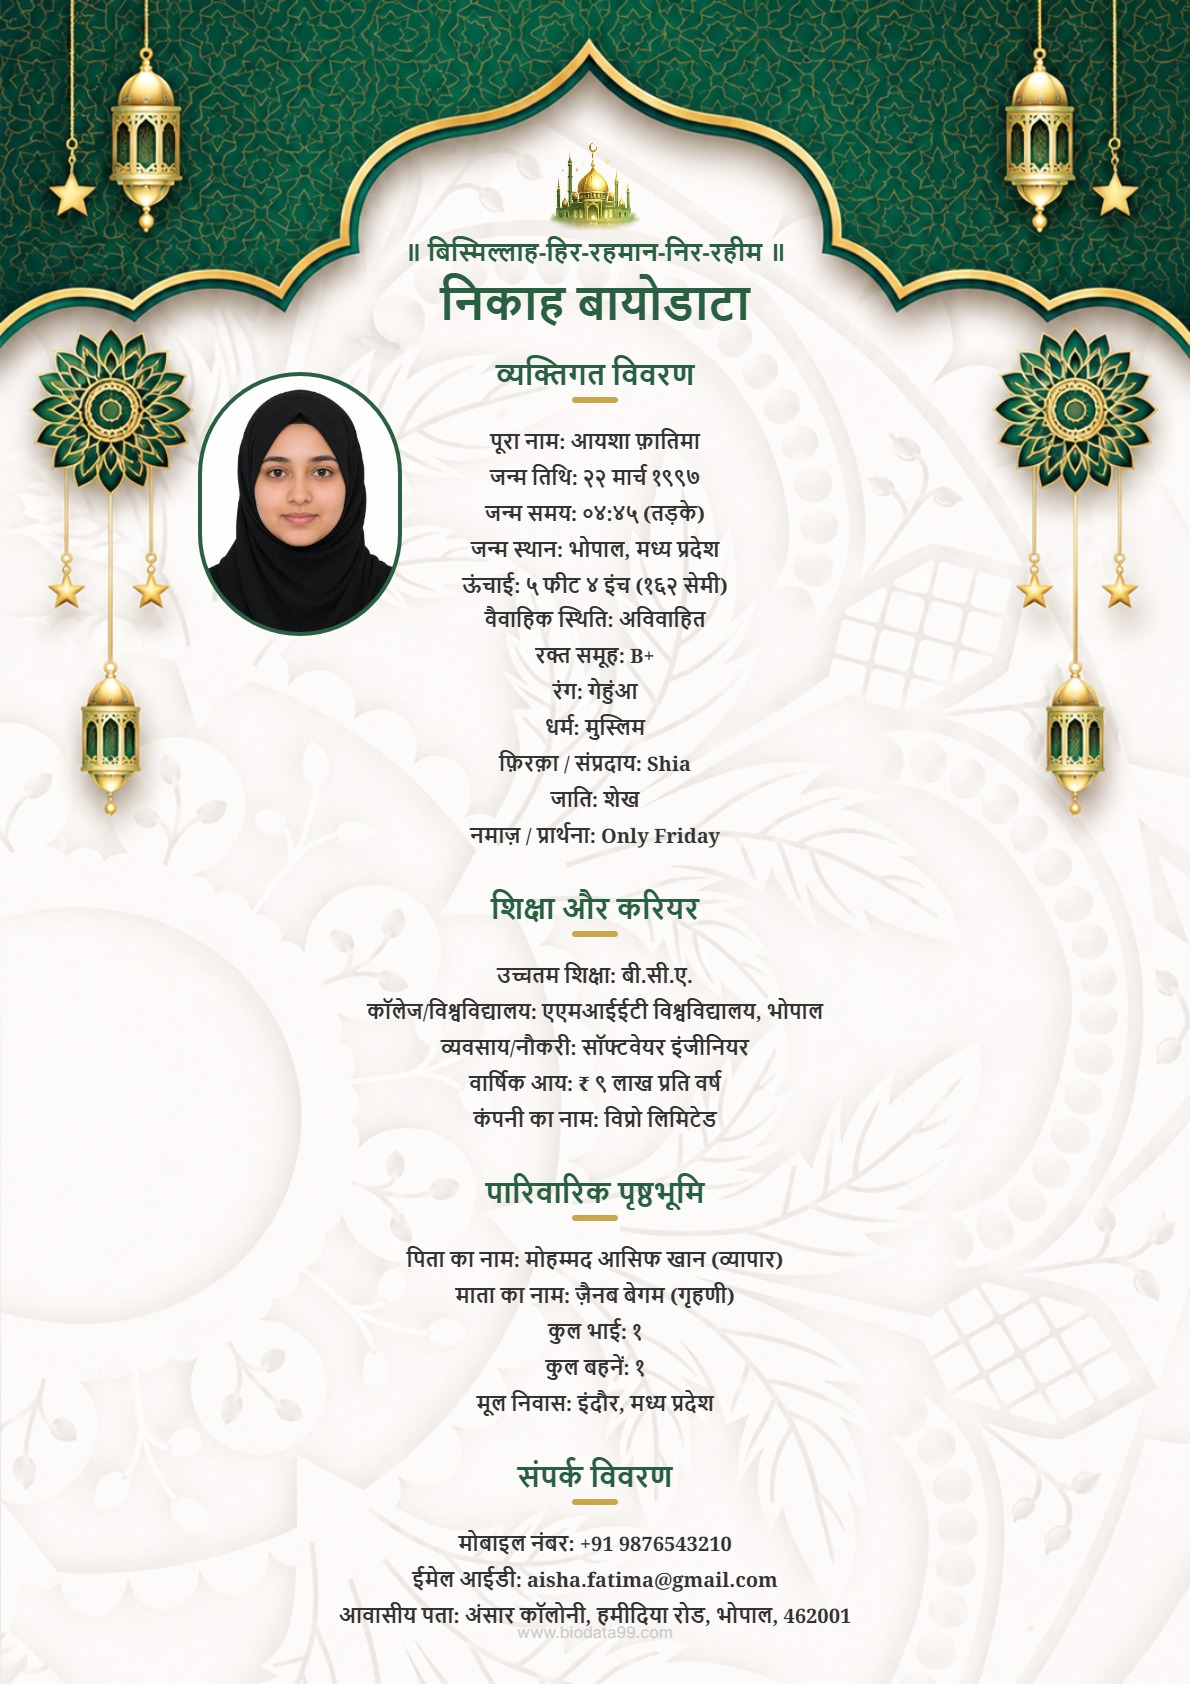 ॥ बिस्मिल्लाह-हिर-रहमान-निर-रहीम ॥
निकाह बायोडाटा
व्यक्तिगत विवरण
पूरा नाम: आयशा फ़ातिमा
जन्म तिथि: २२ मार्च १९९७
जन्म समय: ०४:४५ (तड़के)
जन्म स्थान: भोपाल, मध्य प्रदेश
ऊंचाई: ५ फीट ४ इंच (१६२ सेमी)
वैवाहिक स्थिति: अविवाहित
रक्त समूह: B+
रंग: गेहुंआ
धर्म: मुस्लिम
फ़िरक़ा / संप्रदाय: Shia
जाति: शेख
नमाज़ / प्रार्थना: Only Friday
शिक्षा और करियर
उच्चतम शिक्षा: बी.सी.ए.
कॉलेज/विश्वविद्यालय: एएमआईईटी विश्वविद्यालय, भोपाल
व्यवसाय/नौकरी: सॉफ्टवेयर इंजीनियर
वार्षिक आय: ₹ ९ लाख प्रति वर्ष
कंपनी का नाम: विप्रो लिमिटेड
पारिवारिक पृष्ठभूमि
पिता का नाम: मोहम्मद आसिफ खान (व्यापार)
माता का नाम: ज़ैनब बेगम (गृहणी)
कुल भाई: १
कुल बहनें: १
मूल निवास: इंदौर, मध्य प्रदेश
संपर्क विवरण
मोबाइल नंबर: +91 9876543210
ईमेल आईडी: aisha.fatima@gmail.com
आवासीय पता: अंसार कॉलोनी, हमीदिया रोड, भोपाल, 462001
www.biodata99.com